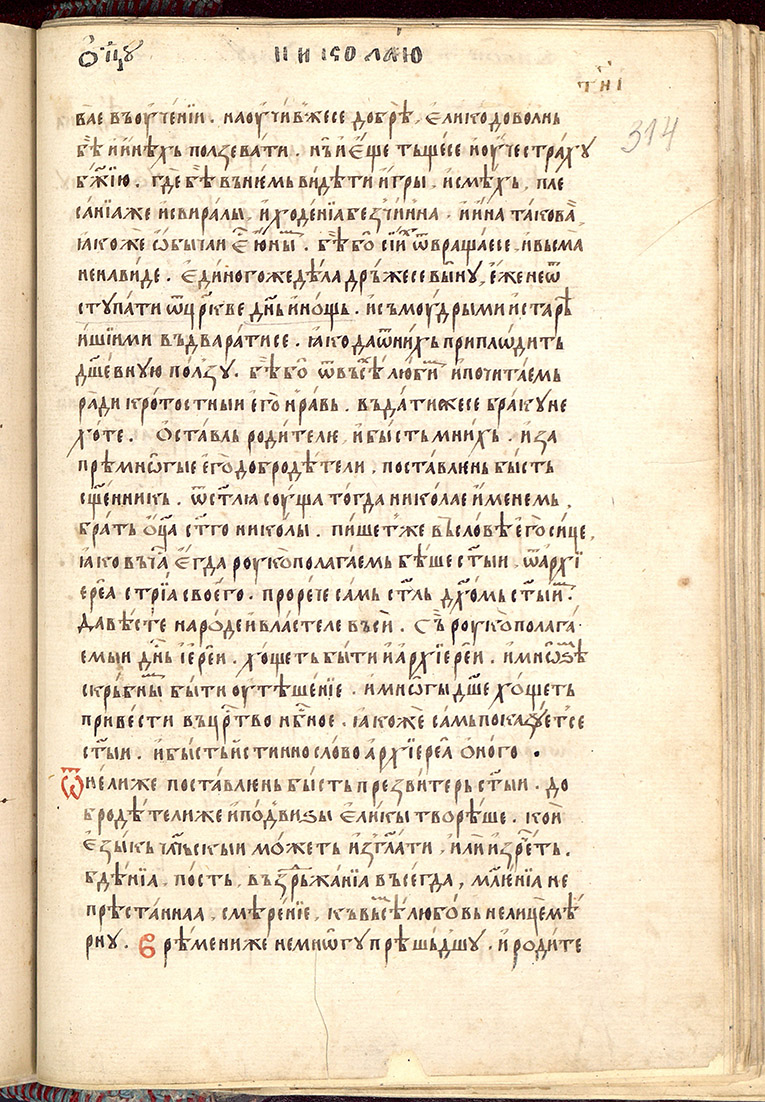 ѻ҆ц꙯ꙋ николаю
тн҃і
314
вае въ оучені́и . наоучи́в̾жесе до́брѣ , е҆лико дово́лнь
бѣ̀ и҆ и҆нѣ́хь ползева́ти . нь̀ и҆ е҆ще тъще́се и҆ оу҆че страхꙋ
бж҃їю . гдѐ бѣ̀ вь не́мь ви́дѣти и҆гры . и҆ смѣ́хь , пле
са́нїа же и҆ свира́лы . и҆ ходе́нїа без̾чи́нна . и҆ и҆на такова̀ ,
ꙗ҆коже ѡ҆бы́чаи е҆ ю҆ны᷍м . бѣ̀ бо̀ си́их ѿвраща́есе . и҆ весма̀
ненавиде . е҆ди́ного же дѣла дръ́жесе вы́нꙋ , е҆́же не ѿ
ступа́ти ѿ цр҃кве дн҃ь и҆ но́щь . и҆ съ моу́дрыми и҆ старѣ́
и҆шїими въдвара́тисе . ꙗ҆ко да ѿ ни́хь припло́дить
дш҃е́внꙋю по́лзꙋ . бѣ̀ бо̀ ѿ въсѣ́х люби᷍м и҆ почита́емь
ра́ди кро́тостныи е҆го̀ нра́вь . въда́ти жесе бра́кꙋ не
хо́те . Ѻ҆ста́вль роди́телѥ , и҆ бы́сть мни́хь . и҆ за
прѣмнѡ́гые е҆го̀ добродѣ́тели , поста́влень бы́сть
сщ҃е́нникь . ѿ ст҃лꙗ соу́ща тогда̀ николае и҆менемь ,
бра́ть ѻ҆ц҃а ст҃го николы . пи́шет̾же въ сло́вѣ е҆го̀ си́це ,
ꙗ҆ко въ чⷭ҇а е҆гда роукѡпо́лагаемь бѣше ст҃ыи . ѿ архї
ере́а стрі́а своего . проре́че самь ст҃ль дх҃омь ст҃ы᷍м .
Да вѣ́сте наро́де и҆ вла́стеле въсѝ . Съ роукѡпо́лага
емыи дн҃ь і҆ере́и . хо́щеть бы́ти и҆ а҆рхїере́и . и҆ мнѡ́зѣ᷍м
скръ́бны᷍м бы́ти оу҆тѣше́нїе . и҆ мнѡ́гы дш҃е хо́щеть
приве́сти въ црⷭ҇тво нбⷭ҇ное . ꙗ҆коже самь пока́зꙋет̾се
ст҃ыи . и҆ бы́сть и҆ стинно сло́во а҆рхїере́а ѻ҆ного .
Ѿнели́же поста́влень бы́сть презви́терь ст҃ыи . до
бродѣ́тели же и҆ по́д̾визы е҆ли́кы творѣ́ше . кои
е҆зы́кь чл҃чьскыи мо́жеть и҆згл҃ати , и҆лѝ и҆зре́ть .
бдѣ́нїа , по́сть , въздръжа́нїа въсегда , мл҃е́нїа не
прѣста́ннаа , смѣре́нїе , къ въсѣ᷍м любо́вь нелицемѣ́
рнꙋ . Врѣ́мени же немнѡ́гꙋ прѣшь́дшꙋ . и҆ роди́те